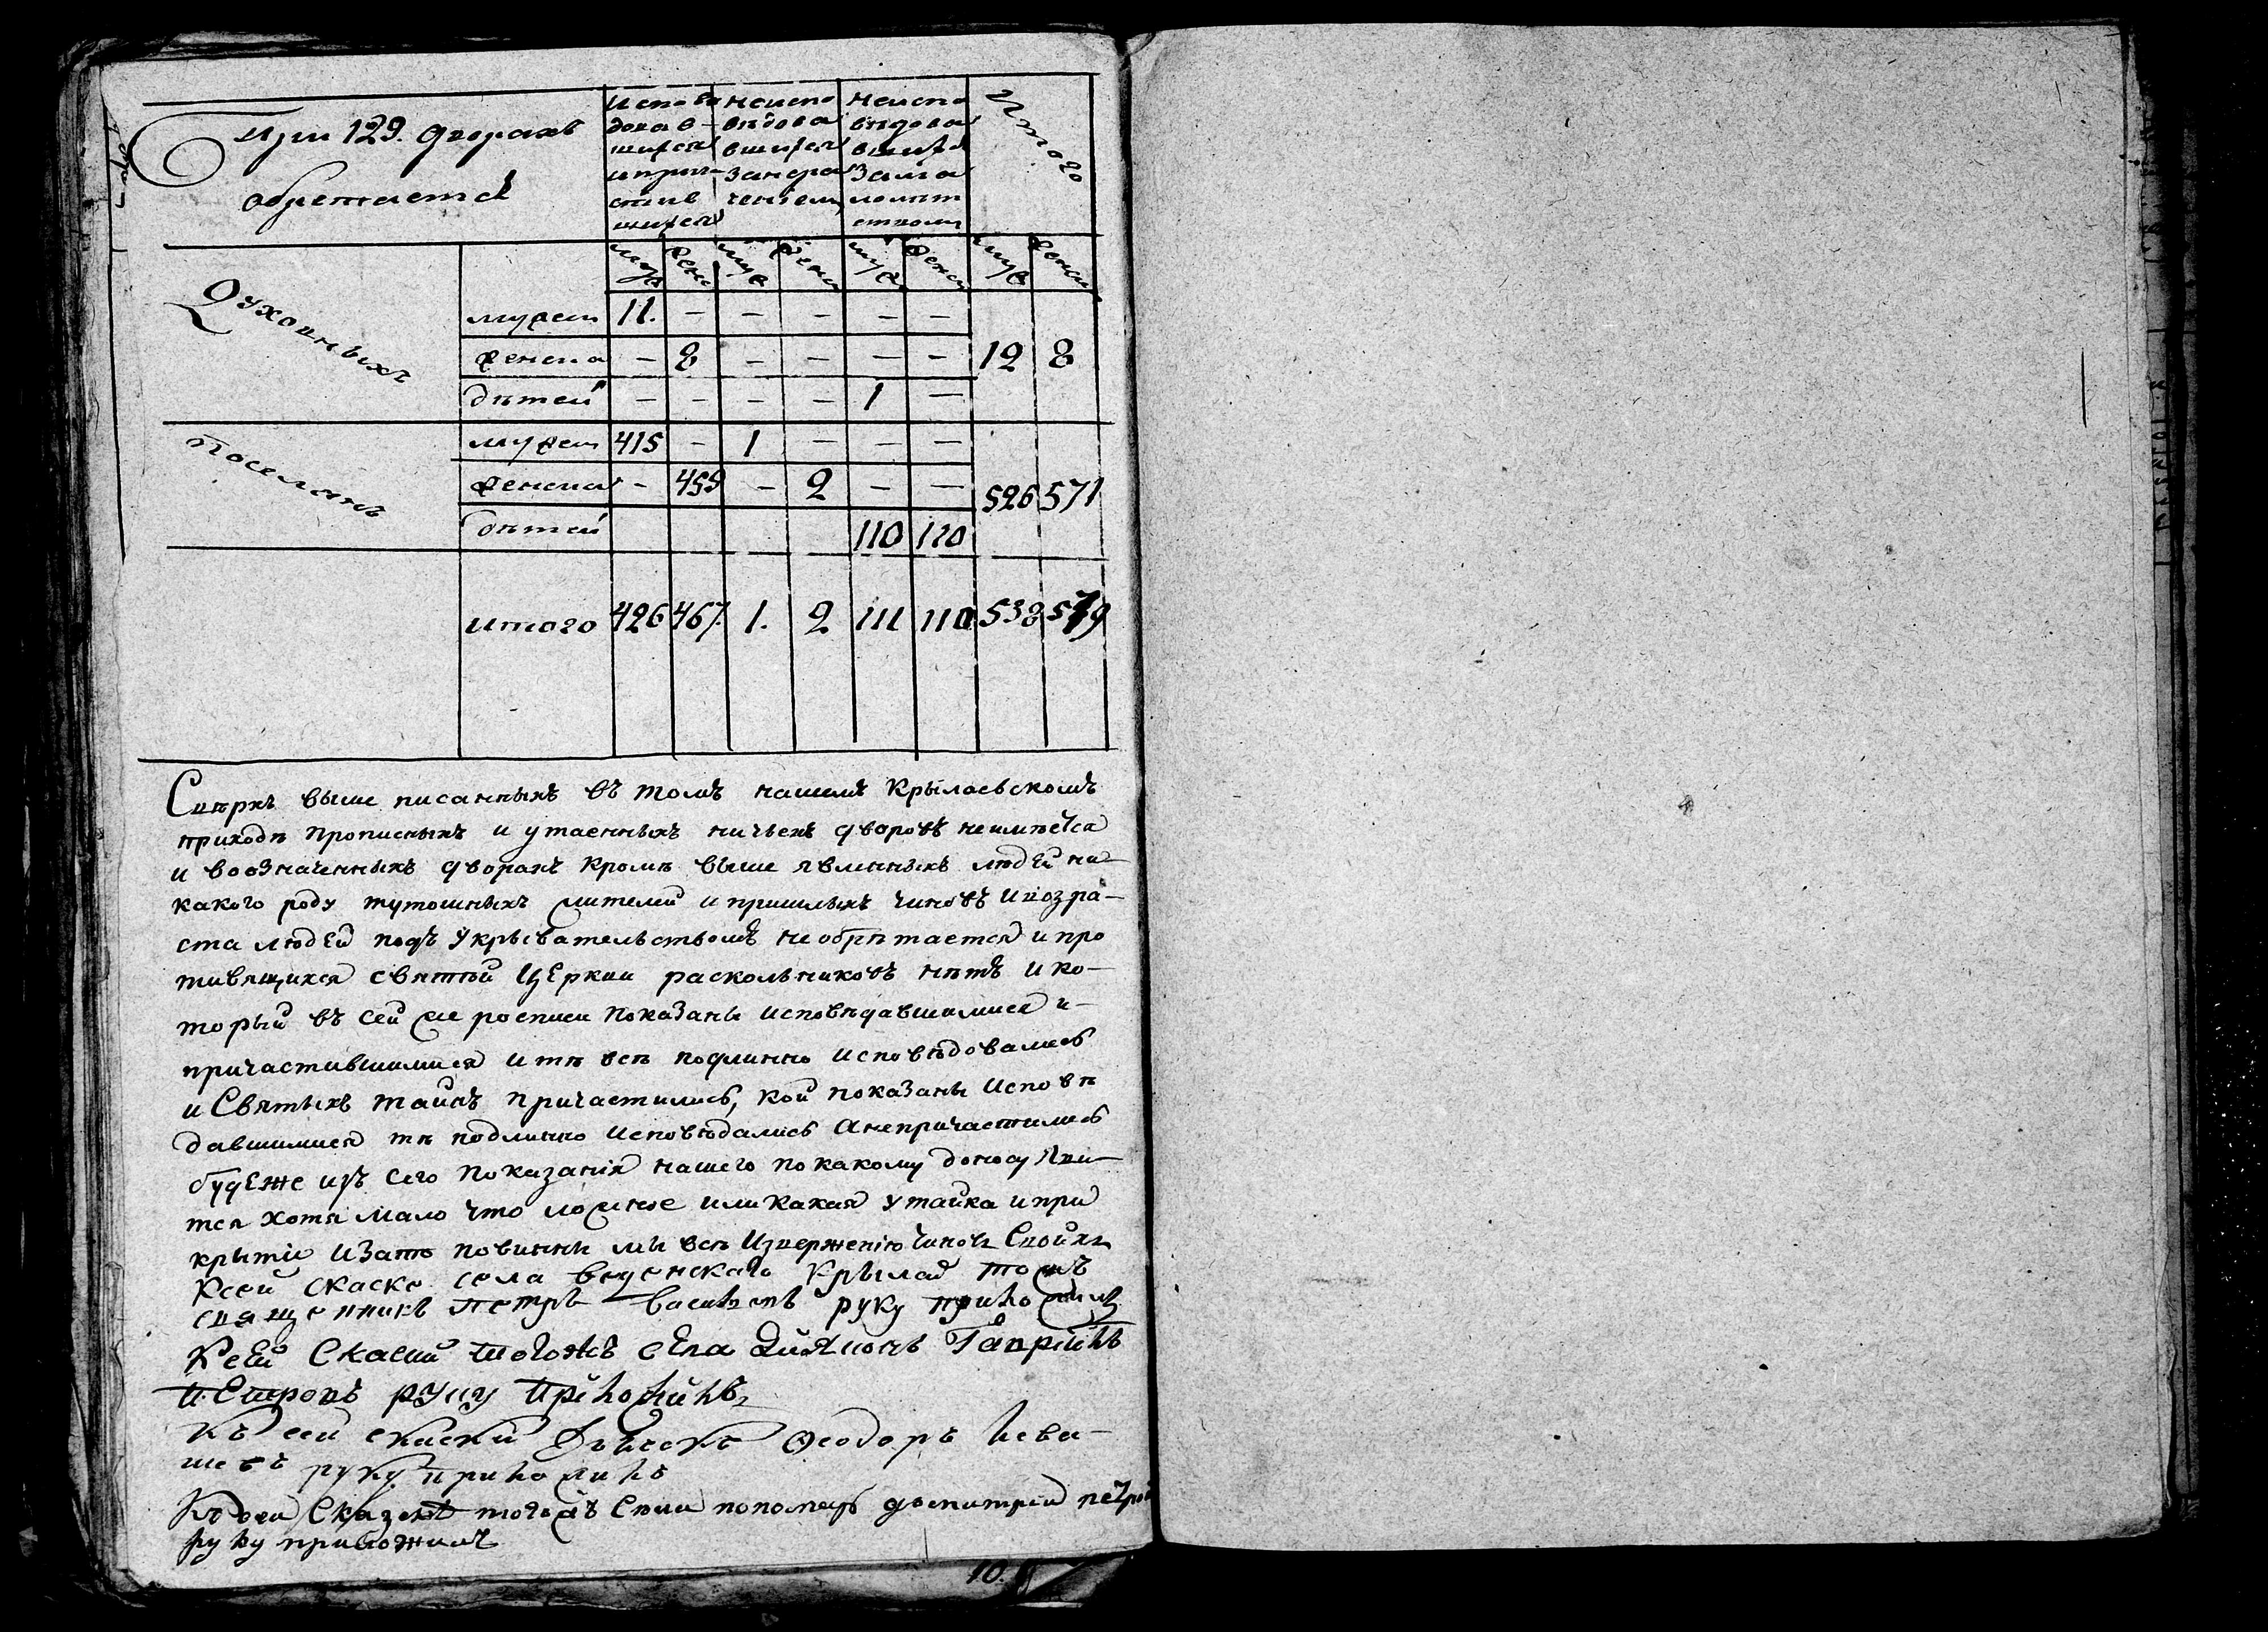 При 129. дворахъ
обретается
Испове
дова в-
шихся
и прич-
стив
шихся
Неиспо
вѣдова
вшихся
за нера
ченіем
Неиспо
вѣдова
вшихся
за мало
лѣт
ством
Итого
муж жен муж жен муж жен муж жен
Духовныхъ
мужеск 11. — — — — —
женска — 8 — — — — 12 8
дѣтей — — — — 1 —
Поселянъ
мужеск 415 — 1 — — —
женска — 459 — 2 — — 526 571
дѣтей 110 110
итого 426 467. 1. 2 111 110 538 579
Сверхъ выше писанныхъ въ томъ нашемъ Крылаевскомъ
приходѣ прописныхъ и утаенныхъ ничьехъ дворовъ неимѣется
и воозначенныхъ дворахъ кромѣ выше явленныхъ людей ни-
какого роду тутошныхъ жителей и пришлыхъ чиновъ и возра-
ста людей подъ укрывательствомъ не обрѣтается и про
тивящихся святѣй Церкви раскольниковъ нѣтъ и ко-
торыи въ сей же росписи показаны исповѣдавшимися и-
причастившимися и тѣ всѣ подлинно исповѣдовались
и Святыхъ таинъ причастились, кои показаны исповѣ
давшимися тѣ подлинно исповѣдались а непричастились
будеже изъ сего показанія нашего по какому доносу яви-
тся хотя мало что ложное или какая утайка и при
крытіе и за то повинны мы всѣ изверженію чиновъ своихъ
Ксеи скаске села веденскаго Крылае тожъ
священникъ петръ васильевъ руку приложилъ
Ксей скаски тогожъ села дияконъ Гаврилъ
петровъ руку приложилъ
Къ сеи скаски дьячокъ Феодоръ Ива-
новъ руку приложилъ
Къ сеи Сказкѣ тогожъ села пономарь дмитреи петров
руку приложилъ
10.